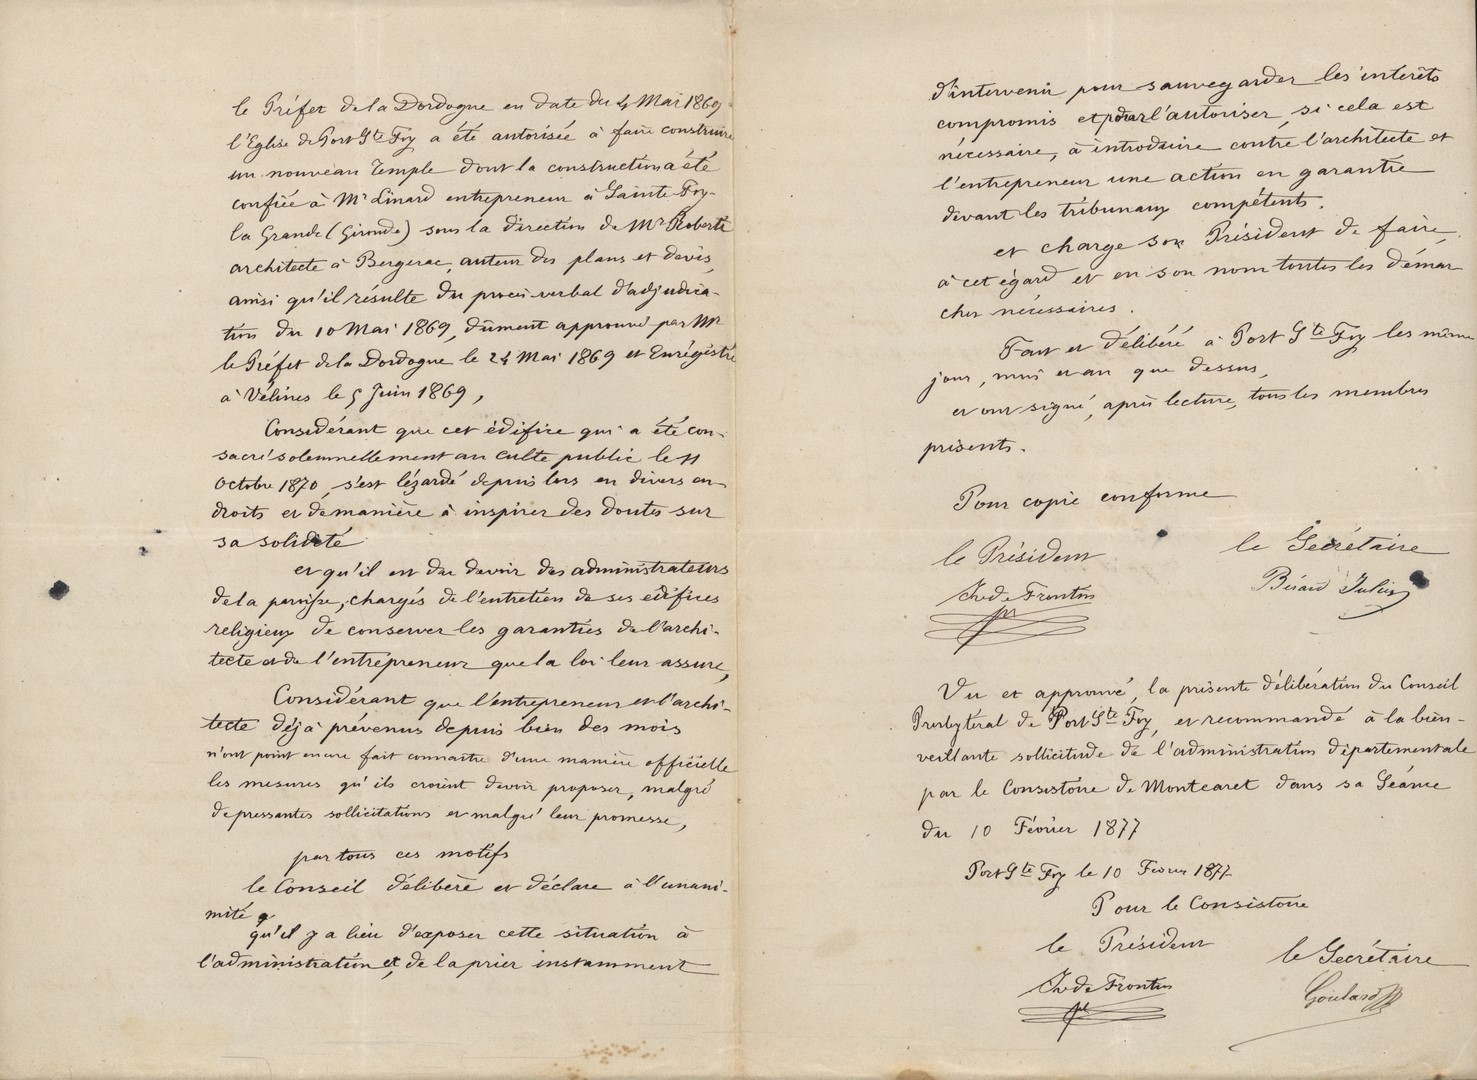 le Préfet de la Dordogne en date du 4 Mai 1869
l'Eglise de Port Ste Foy a été autorisée à faire construire
un nouveau Temple dont la construction a été
confiée à Mr Linard entrepreneur à Sainte-Foy-
la Grande (Gironde) sous la direction de Mr Roberti
architecte à Bergerac, auteur des plans et devis,
ainsi qu'il résulte du procès verbal d'adjudica-
tion du 10 Mai 1869, dûment approuvé par Mr
le Préfet de la Dordogne le 24 Mai 1869 et Enrégistré
à Vélines le 5 Juin 1869,
Considérant que cet édifice qui a été con-
sacré solennellement au culte public le 11
Octobre 1870, s'est lézardé depuis lors en divers en-
droits et de manière à inspirer des doutes sur
sa solidité
et qu'il est du devoir des administrateurs
de la paroisse, chargés de l'entretien de ses édifices
religieux de conserver les garanties de l'archi-
tecte et de l'entrepreneur que la loi leur assure,
Considérant que l'entrepreneur et l'archi-
tecte déjà prévenus depuis bien des mois
n'ont point encore fait connaître d'une manière officielle
les mesures qu'ils croient devoir proposer, malgré
de pressantes sollicitations et malgré leur promesse,
par tous ces motifs
le Conseil délibère et déclare à l'unani-
mité
qu'il y a lieu d'exposer cette situation à
l'administration et de la prier instamment
d'intervenir pour sauvegarder les intérêts
compromis et pour l'autoriser, si cela est
nécessaire, à introduire contre l'architecte et
l'entrepreneur une action en garantie
devant les tribunaux compétents.
et charge son Président de faire,
à cet égard et en son nom toutes les démar
ches nécessaires.
Fait et délibéré à Port Ste Foy les même
jour, mois et an que dessus,
et ont signé, après lecture, tous les membres
présents.
Pour copie conforme
le Président
le Secrétaire
de Frontin
Béraud Julien
Vu et approuvé, la présente délibération du Conseil
Presbytéral de Port Ste Foy, et recommandé à la bien-
veillante sollicitude de l'administration départementale
par le Consistoire de Montcaret dans sa Séance
du 10 Février 1877
Port Ste Foy le 10 Février 1877
Pour le Consistoire
le Président
le Secrétaire
de Frontin
Goulard